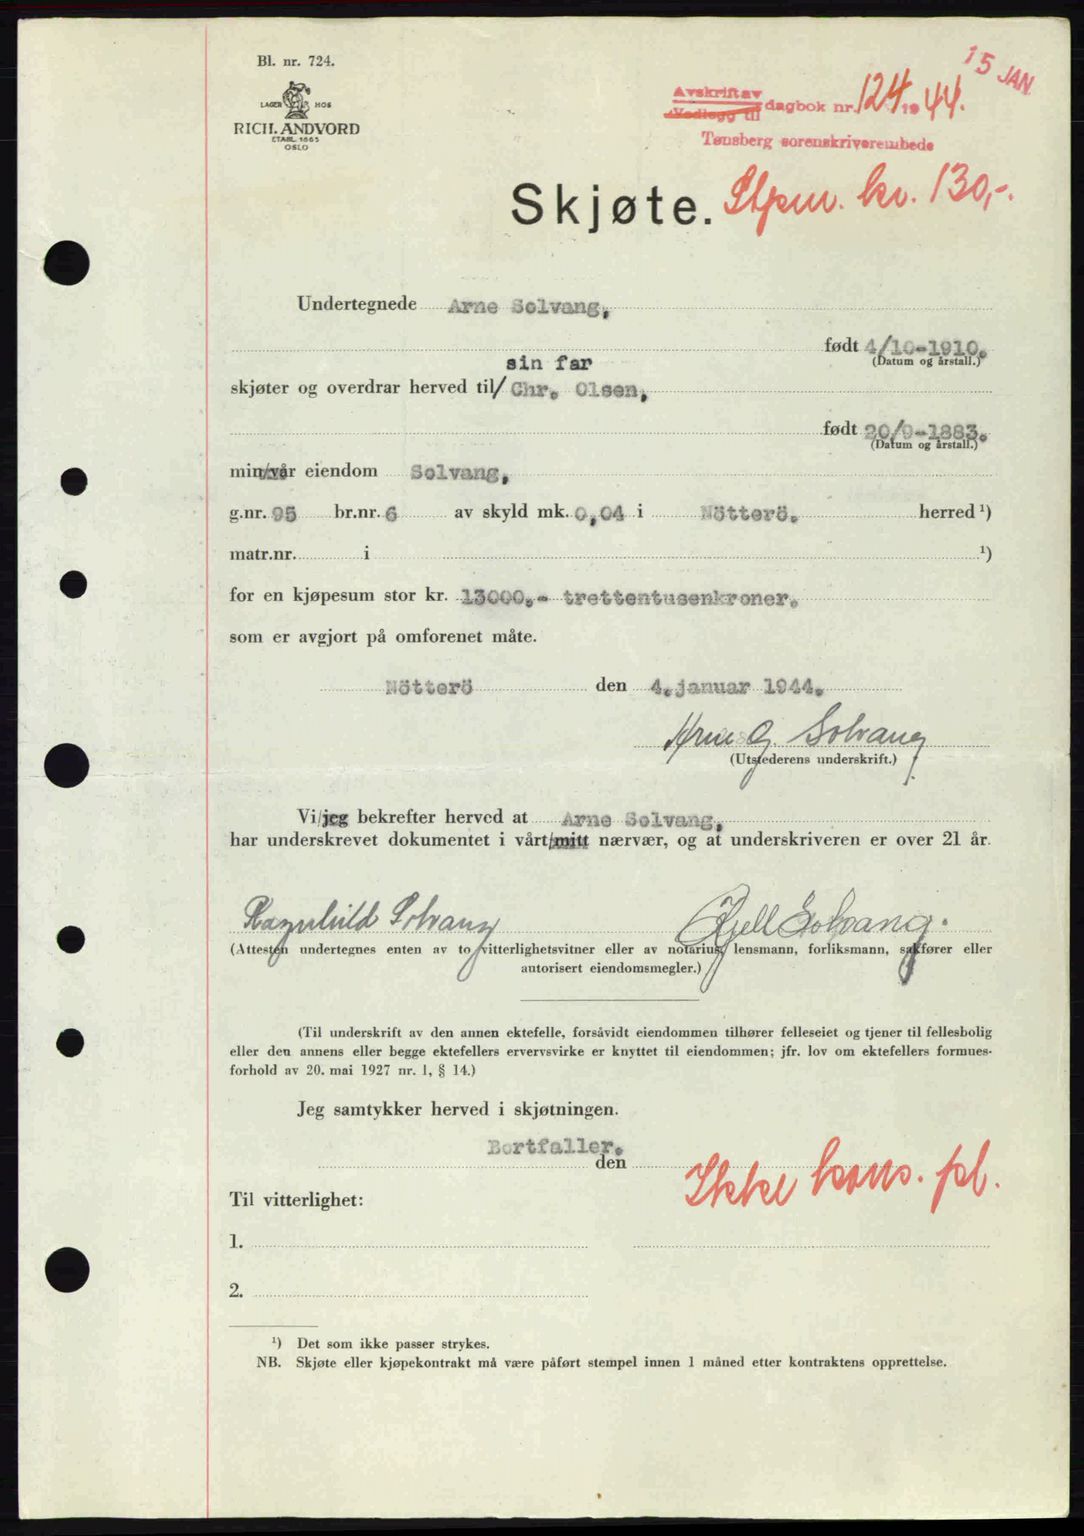 Bl. nr. 724.
LAGER HOS
RICH. ANDVORD
ETABL. 1865
OSLO
15 JAN
Avskrift av
Vedlegg til dagbok nr. 124 1944.
Tønsberg sorenskriverembede
Skjøte. Stpm. kr. 130,-.
Undertegnede Arne Solvang,
født 4/10-1910.
(Datum og årstall.)
sin far
skjøter og overdrar herved til/ Chr. Olsen,
født 20/9-1883.
(Datum og årstall.)
min/vår eiendom Solvang,
g.nr. 95 br.nr. 6 av skyld mk. 0,04 i Nötterö. herred ¹)
matr.nr. i ¹)
for en kjøpesum stor kr. 13000,- trettentusenkroner.
som er avgjort på omforenet måte.
Nötterö den 4.januar 1944.
Arne G. Solvang
(Utstederens underskrift.)
Vi/jeg bekrefter herved at Arne Solvang,
har underskrevet dokumentet i vårt/mitt nærvær, og at underskriveren er over 21 år.
Ragnhild Solvang Kjell Solvang.
(Attesten undertegnes enten av to vitterlighetsvitner eller av notarius, lensmann, forliksmann, sakfører eller
autorisert eiendomsmegler.)
(Til underskrift av den annen ektefelle, forsåvidt eiendommen tilhører felleseiet og tjener til fellesbolig
eller den annens eller begge ektefellers ervervsvirke er knyttet til eiendommen; jfr. lov om ektefellers formues-
forhold av 20. mai 1927 nr. 1, § 14.)
Jeg samtykker herved i skjøtningen.
Bortfaller.
den
Ikke kons. pl.
Til vitterlighet:
1.
2.
¹) Det som ikke passer strykes.
NB. Skjøte eller kjøpekontrakt må være påført stempel innen 1 måned etter kontraktens opprettelse.